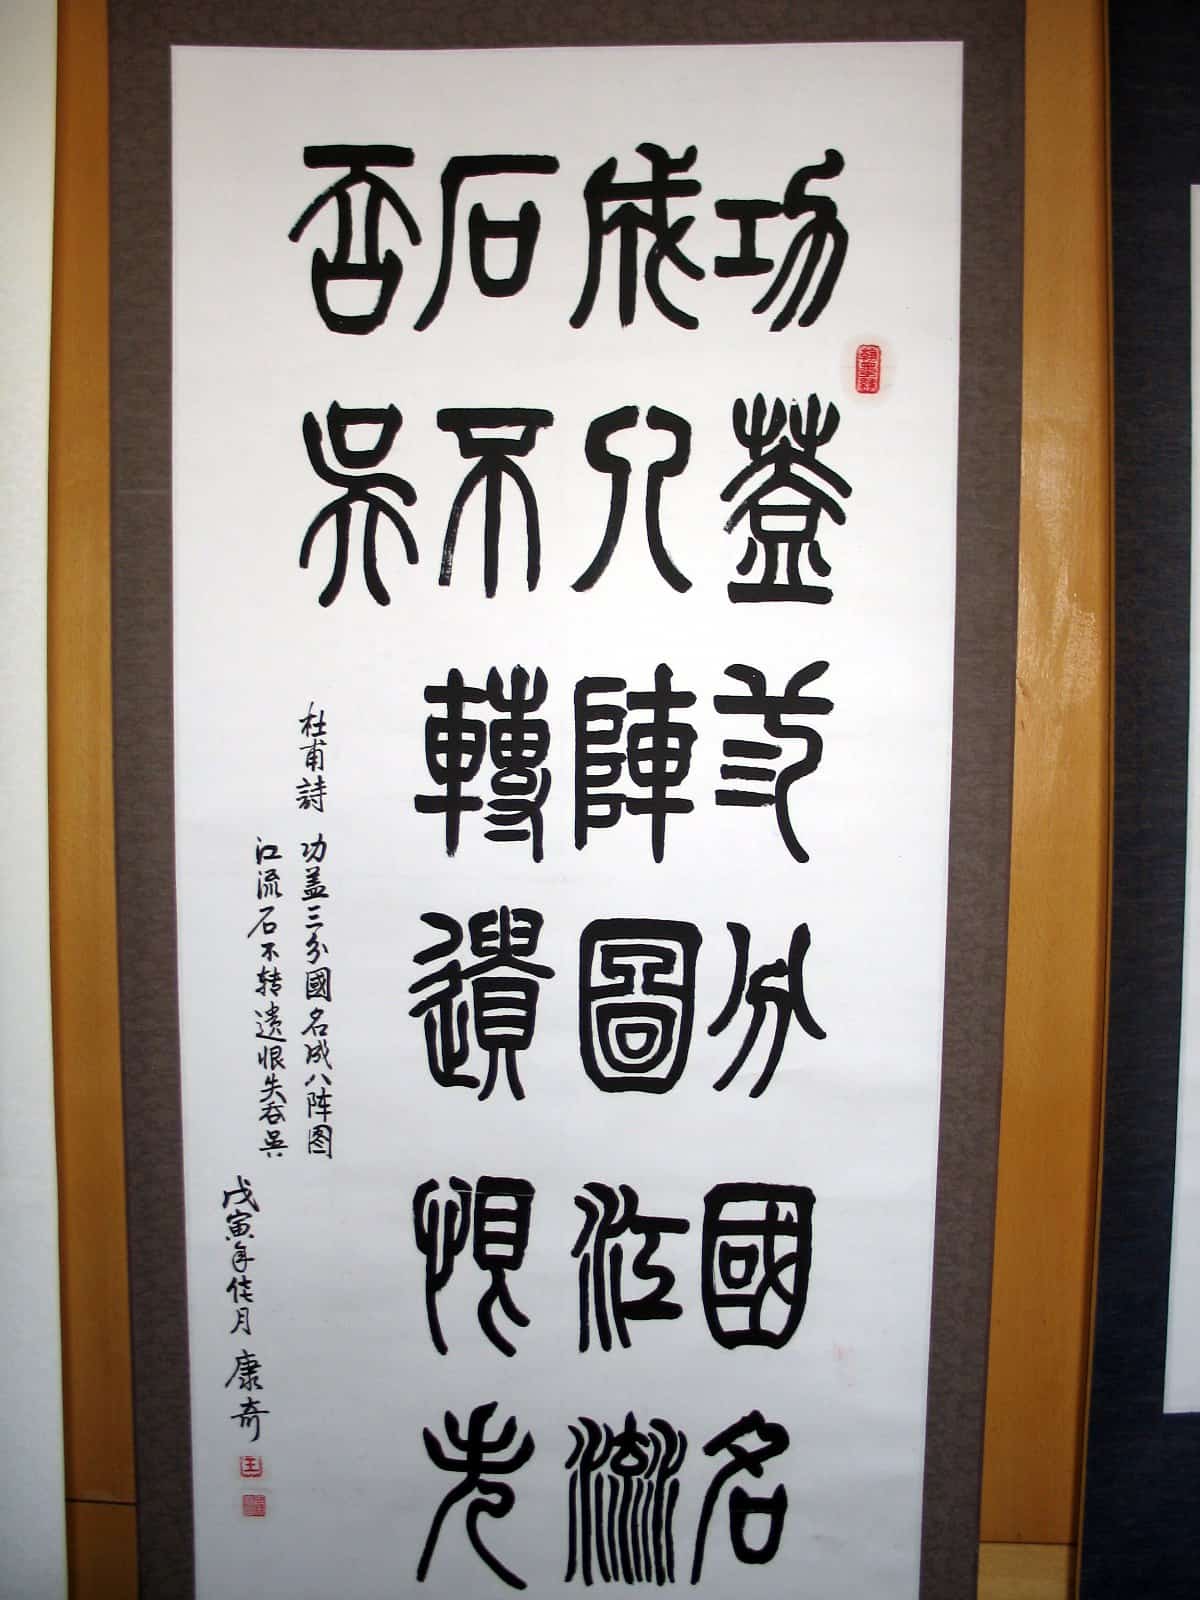 功蓋弎分國名
成八陣圖江流
石不轉遺恨失
吞吳
杜甫詩 功盖三分國名成八阵图
江流石不转遗恨失吞吳
戊寅年佳月 康奇
王